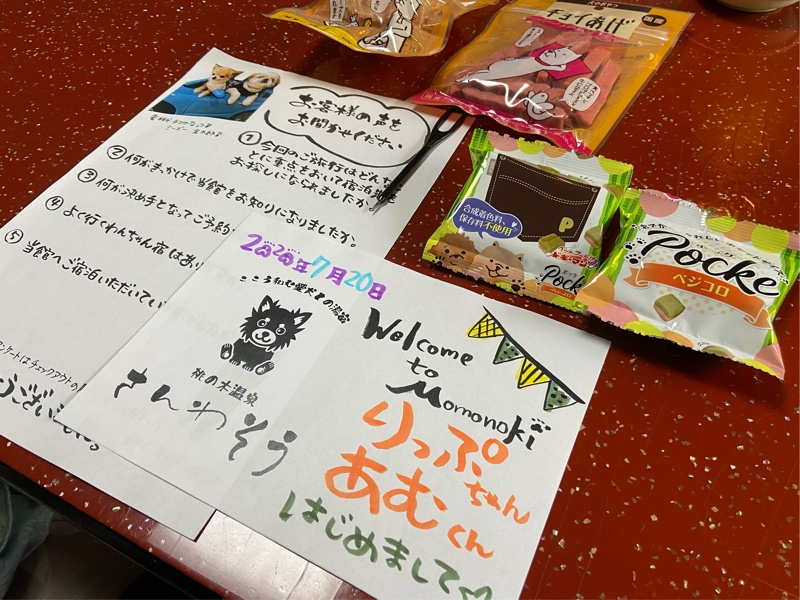 チョイあげ
国産
お客様の声を
お聞かせください
① 今回のご旅行はどんな
とに重点をおいて宿泊
お探しになられましたか。
② 何がきっかけで当館をお知りになりましたか。
③ 何が決め手となってご予約
④ よく行くわんちゃん宿はあり
⑤ 当館へご宿泊いただいてい
ンケートはチェックアウトの
うございました。
2020年7月20日
こころ和む愛犬との湯宿
桃の木温泉
さんわそう
Welcome
to
Momonoki
りっぷちゃん
あむくん
はじめまして♡
合成着色料、
保存料不使用
P
Pock
Pocke
ベジコロ